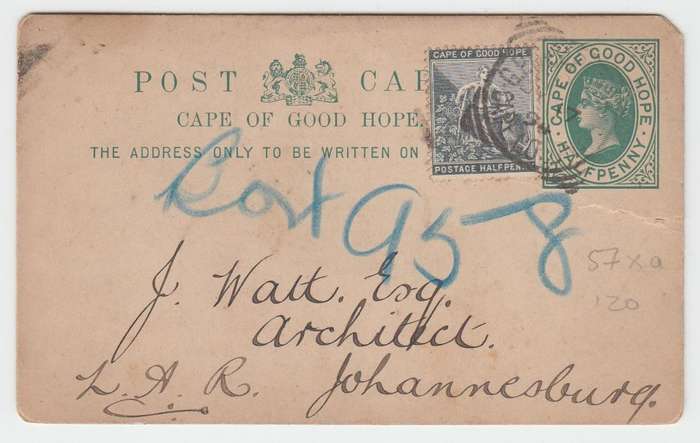 POST CAR
CAPE OF GOOD HOPE.
THE ADDRESS ONLY TO BE WRITTEN ON
CAPE OF GOOD HOPE
POSTAGE HALFPENN
CAPE OF GOOD HOPE
HALFPENNY
Box 958
57xa
120
J. Watt. Esq.
Architect.
Z. A. R. Johannesburg.